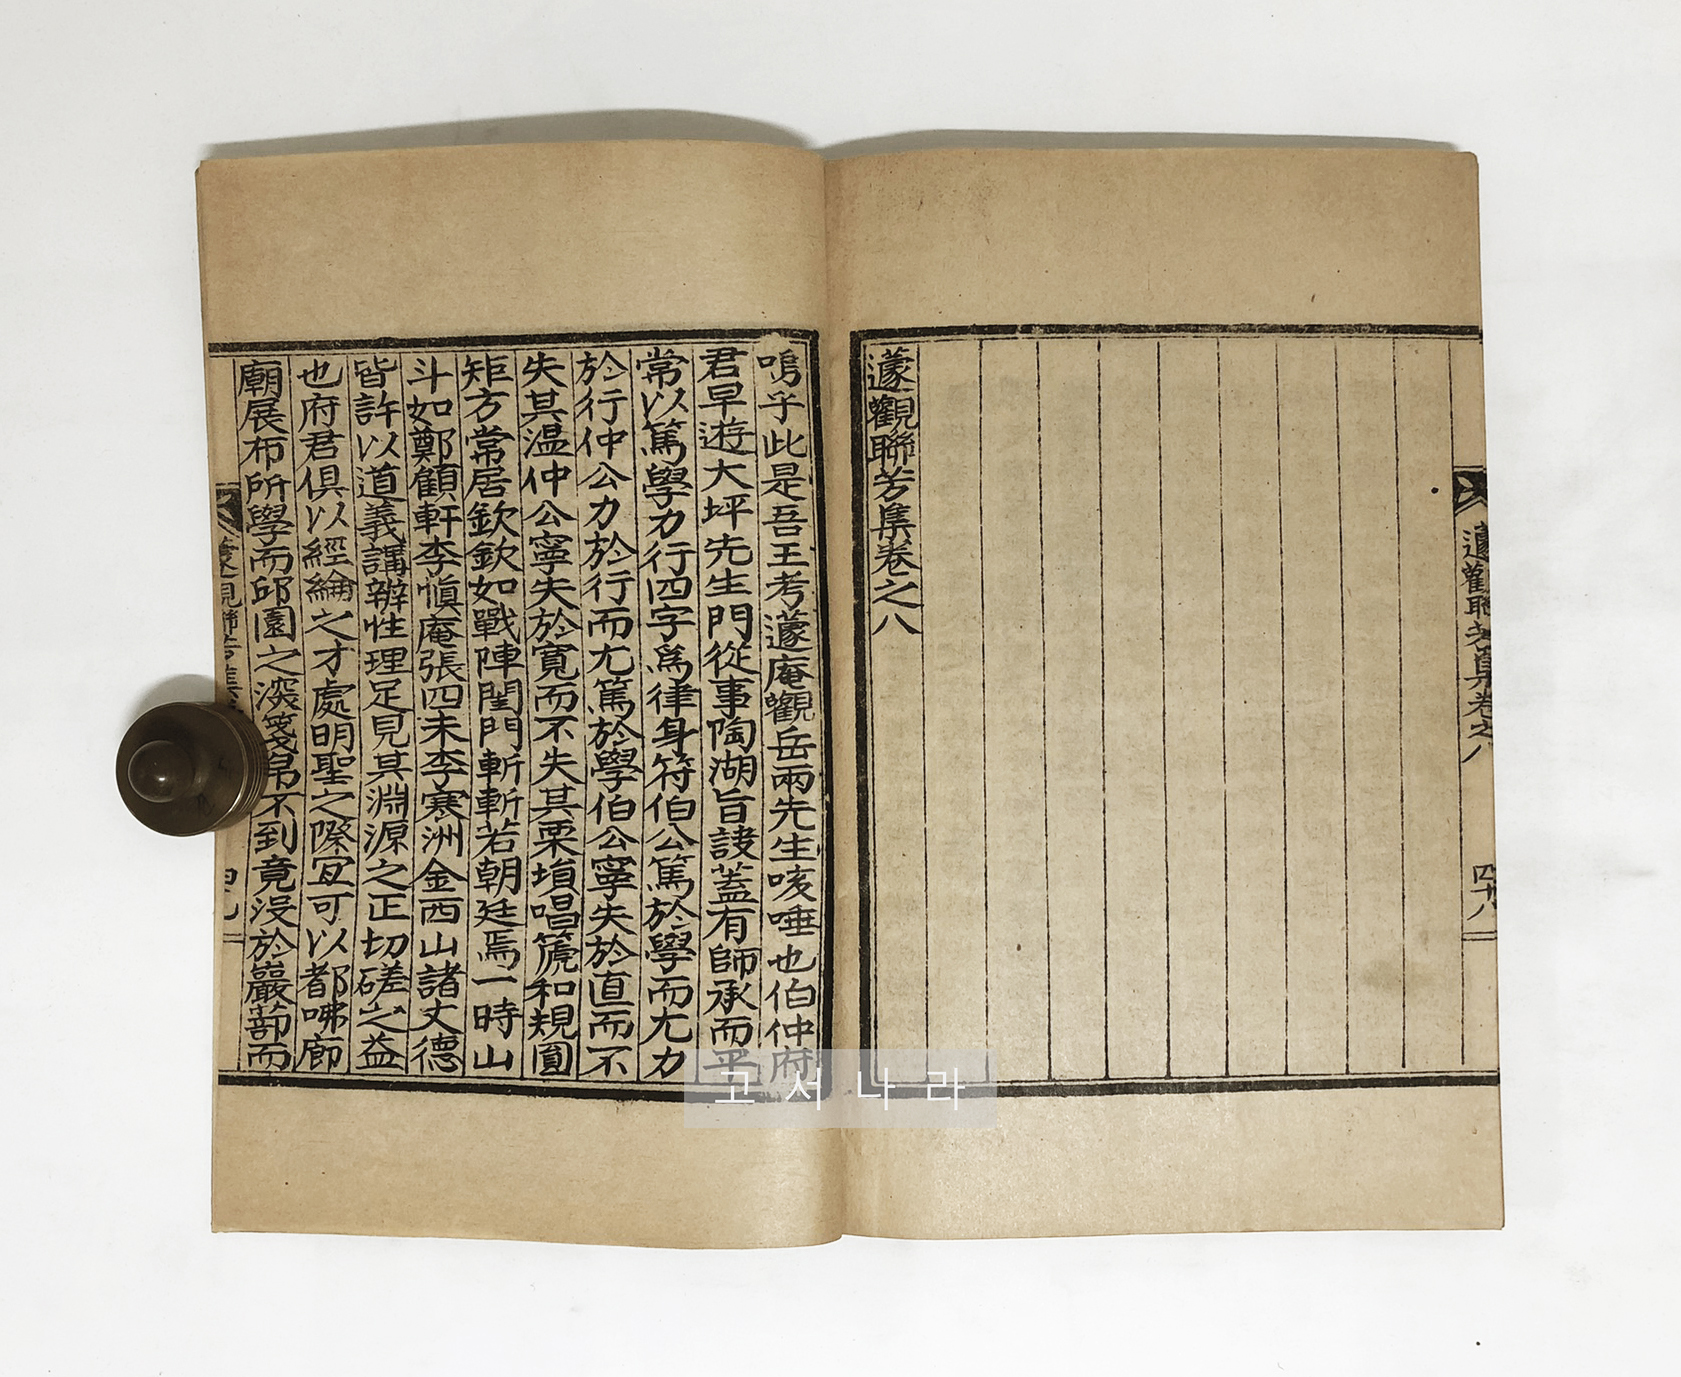 蘧觀聯芳集卷之八
四十八
蘧觀聯芳集卷之八
嗚乎此是吾王考蘧庵觀岳兩先生咳唾也伯仲府
君早遊大坪先生門從事陶湖旨諔蓋有師承而平
常以篤學力行四字爲律身符伯公篤於學而尤力
於行仲公力於行而尤篤於學伯公寧失於直而不
失其溫仲公寧失於寛而不失其栗塤唱篪和規圓
矩方常居欽欽如戰陣閨門斬斬若朝廷焉一時山
斗如鄭顧軒李愼庵張四未李寒洲金西山諸丈德
皆許以道義講辨性理足見其淵源之正切磋之益
也府君俱以經綸之才處明聖之際宜可以都咈廊
廟展布所學而邱園之深箋帛不到竟沒於巖蔀而
고서나라